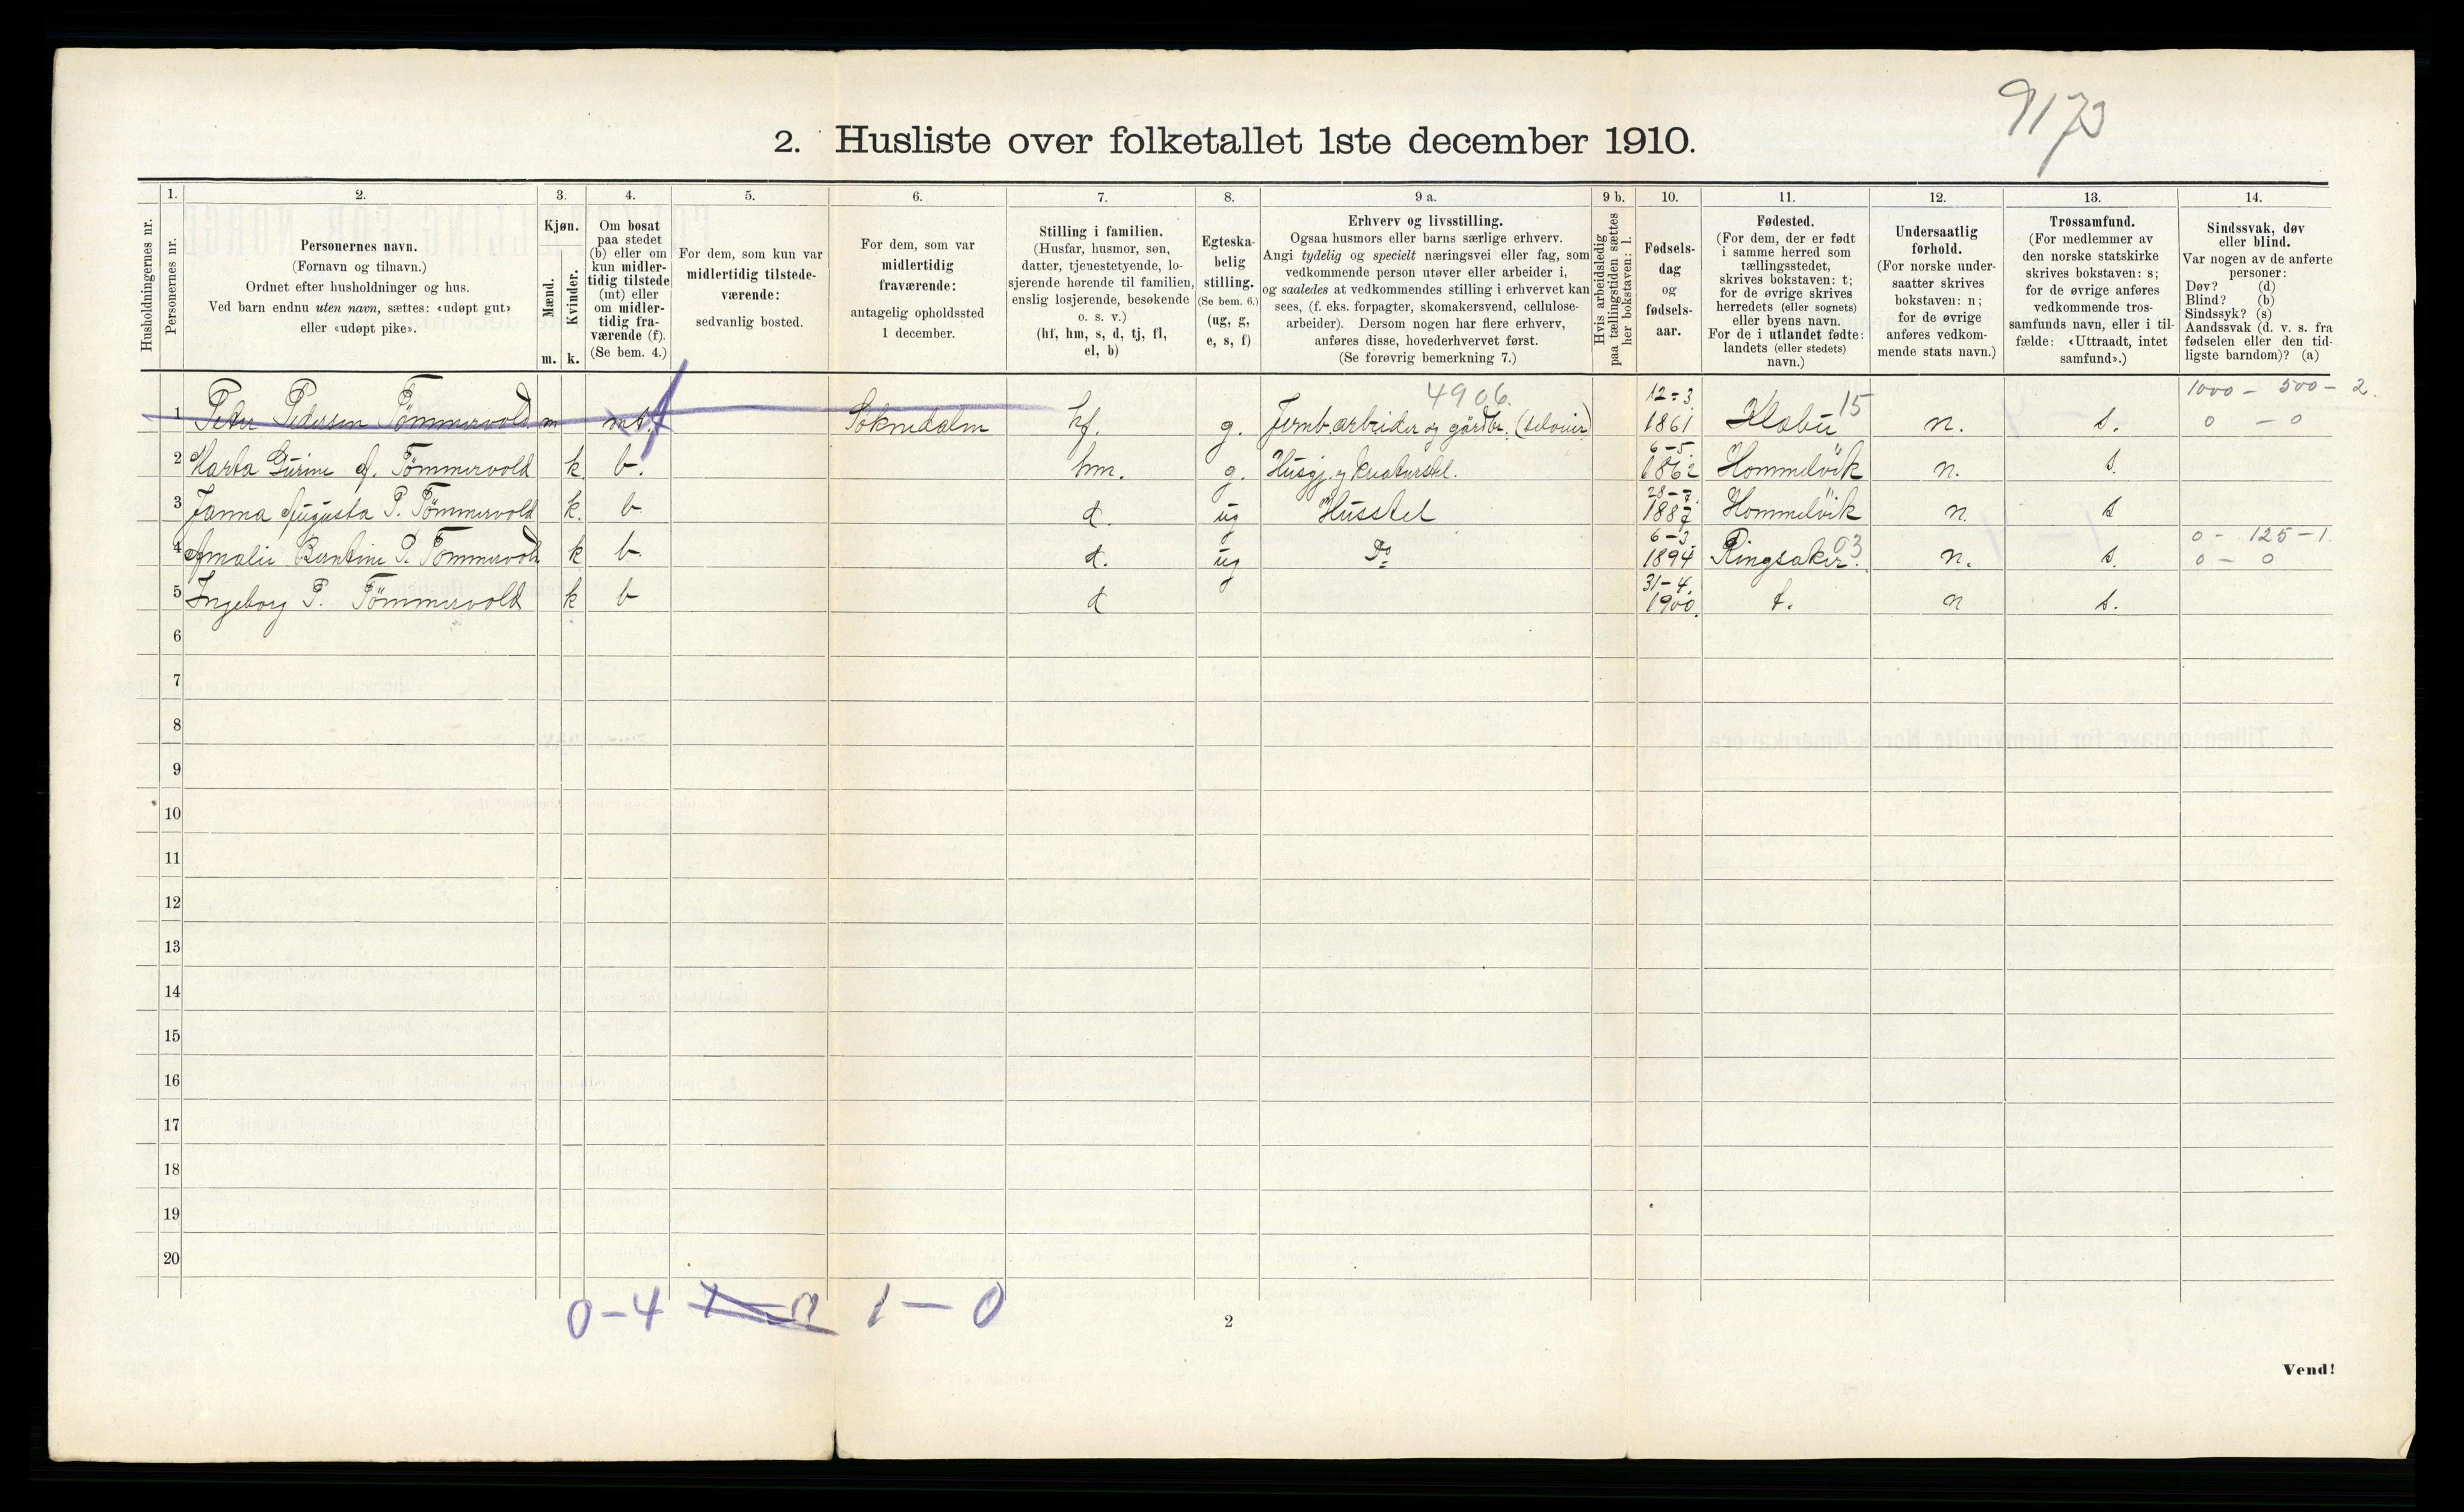 9173
2. Husliste over folketallet 1ste december 1910.
Husholdningernes nr.
1.
Personernes nr.
2.
Personernes navn.
(Fornavn og tilnavn.)
Ordnet efter husholdninger og hus.
Ved barn endnu uten navn, sættes: «udøpt gut»
eller «udøpt pike».
3.
Kjøn.
Mænd.
Kvinder.
m. k.
4.
Om bosat
paa stedet
(b) eller om
kun midler-
tidig tilstede
(mt) eller
om midler-
tidig fra-
værende (f).
(Se bem. 4.)
5.
For dem, som kun var
midlertidig tilstede-
værende:
sedvanlig bosted.
6.
For dem, som var
midlertidig
fraværende:
antagelig opholdssted
1 december.
7.
Stilling i familien.
(Husfar, husmor, søn,
datter, tjenestetyende, lo-
sjerende hørende til familien,
enslig losjerende, besøkende
o. s. v.)
(hf, hm, s, d, tj, fl,
el, b)
8.
Egteska-
belig
stilling.
(Se bem. 6.)
(ug, g,
e, s, f)
9 a.
Erhverv og livsstilling.
Ogsaa husmors eller barns særlige erhverv.
Angi tydelig og specielt næringsvei eller fag, som
vedkommende person utøver eller arbeider i,
og saaledes at vedkommendes stilling i erhvervet kan
sees, (f. eks. forpagter, skomakersvend, cellulose-
arbeider). Dersom nogen har flere erhverv,
anføres disse, hovederhvervet først.
(Se forøvrig bemerkning 7.)
9 b.
Hvis arbeidsledig
paa tællingstiden sættes
her bokstaven: l.
10.
Fødsels-
dag
og
fødsels-
aar.
11.
Fødested.
(For dem, der er født
i samme herred som
tællingsstedet,
skrives bokstaven: t;
for de øvrige skrives
herredets (eller sognets)
eller byens navn.
For de i utlandet fødte:
landets (eller stedets)
navn.)
12.
Undersaatlig
forhold.
(For norske under-
saatter skrives
bokstaven: n;
for de øvrige
anføres vedkom-
mende stats navn.)
13.
Trossamfund.
(For medlemmer av
den norske statskirke
skrives bokstaven: s;
for de øvrige anføres
vedkommende tros-
samfunds navn, eller i til-
fælde: «Uttraadt, intet
samfund».)
14.
Sindssvak, døv
eller blind.
Var nogen av de anførte
personer:
Døv? (d)
Blind? (b)
Sindssyk? (s)
Aandssvak (d. v. s. fra
fødselen eller den tid-
ligste barndom)? (a)
4906. 12-3 15 1000 - 500 - 2.
1 Peder Pedersen Tömmervold m mt. f Soknedalen hf. g. Jernb.arbeider og gårdbr. (seleier) 1861 Klæbu n. s. 0 - 0
6-5.
2 Marta Gurine A. Tömmervold k b. hm. g. Husgj. og kreaturstel. 1862 Hommelvik n. s.
28-7.
3 Janna Augusta P. Tömmervold k. b d. ug Husstel 1887 Hommelvik n. s
6-3. 03 0 - 125 - 1.
4 Amalie Berntine P. Tömmervold k b. d. ug Do 1894 Ringsaker. n. s. 0 - 0
31-4.
5 Ingeborg P. Tömmervold k b d 1900. t. n s.
6
7
8
9
10
11
12
13
14
15
16
17
18
19
20
0-4 1-0
2
Vend!